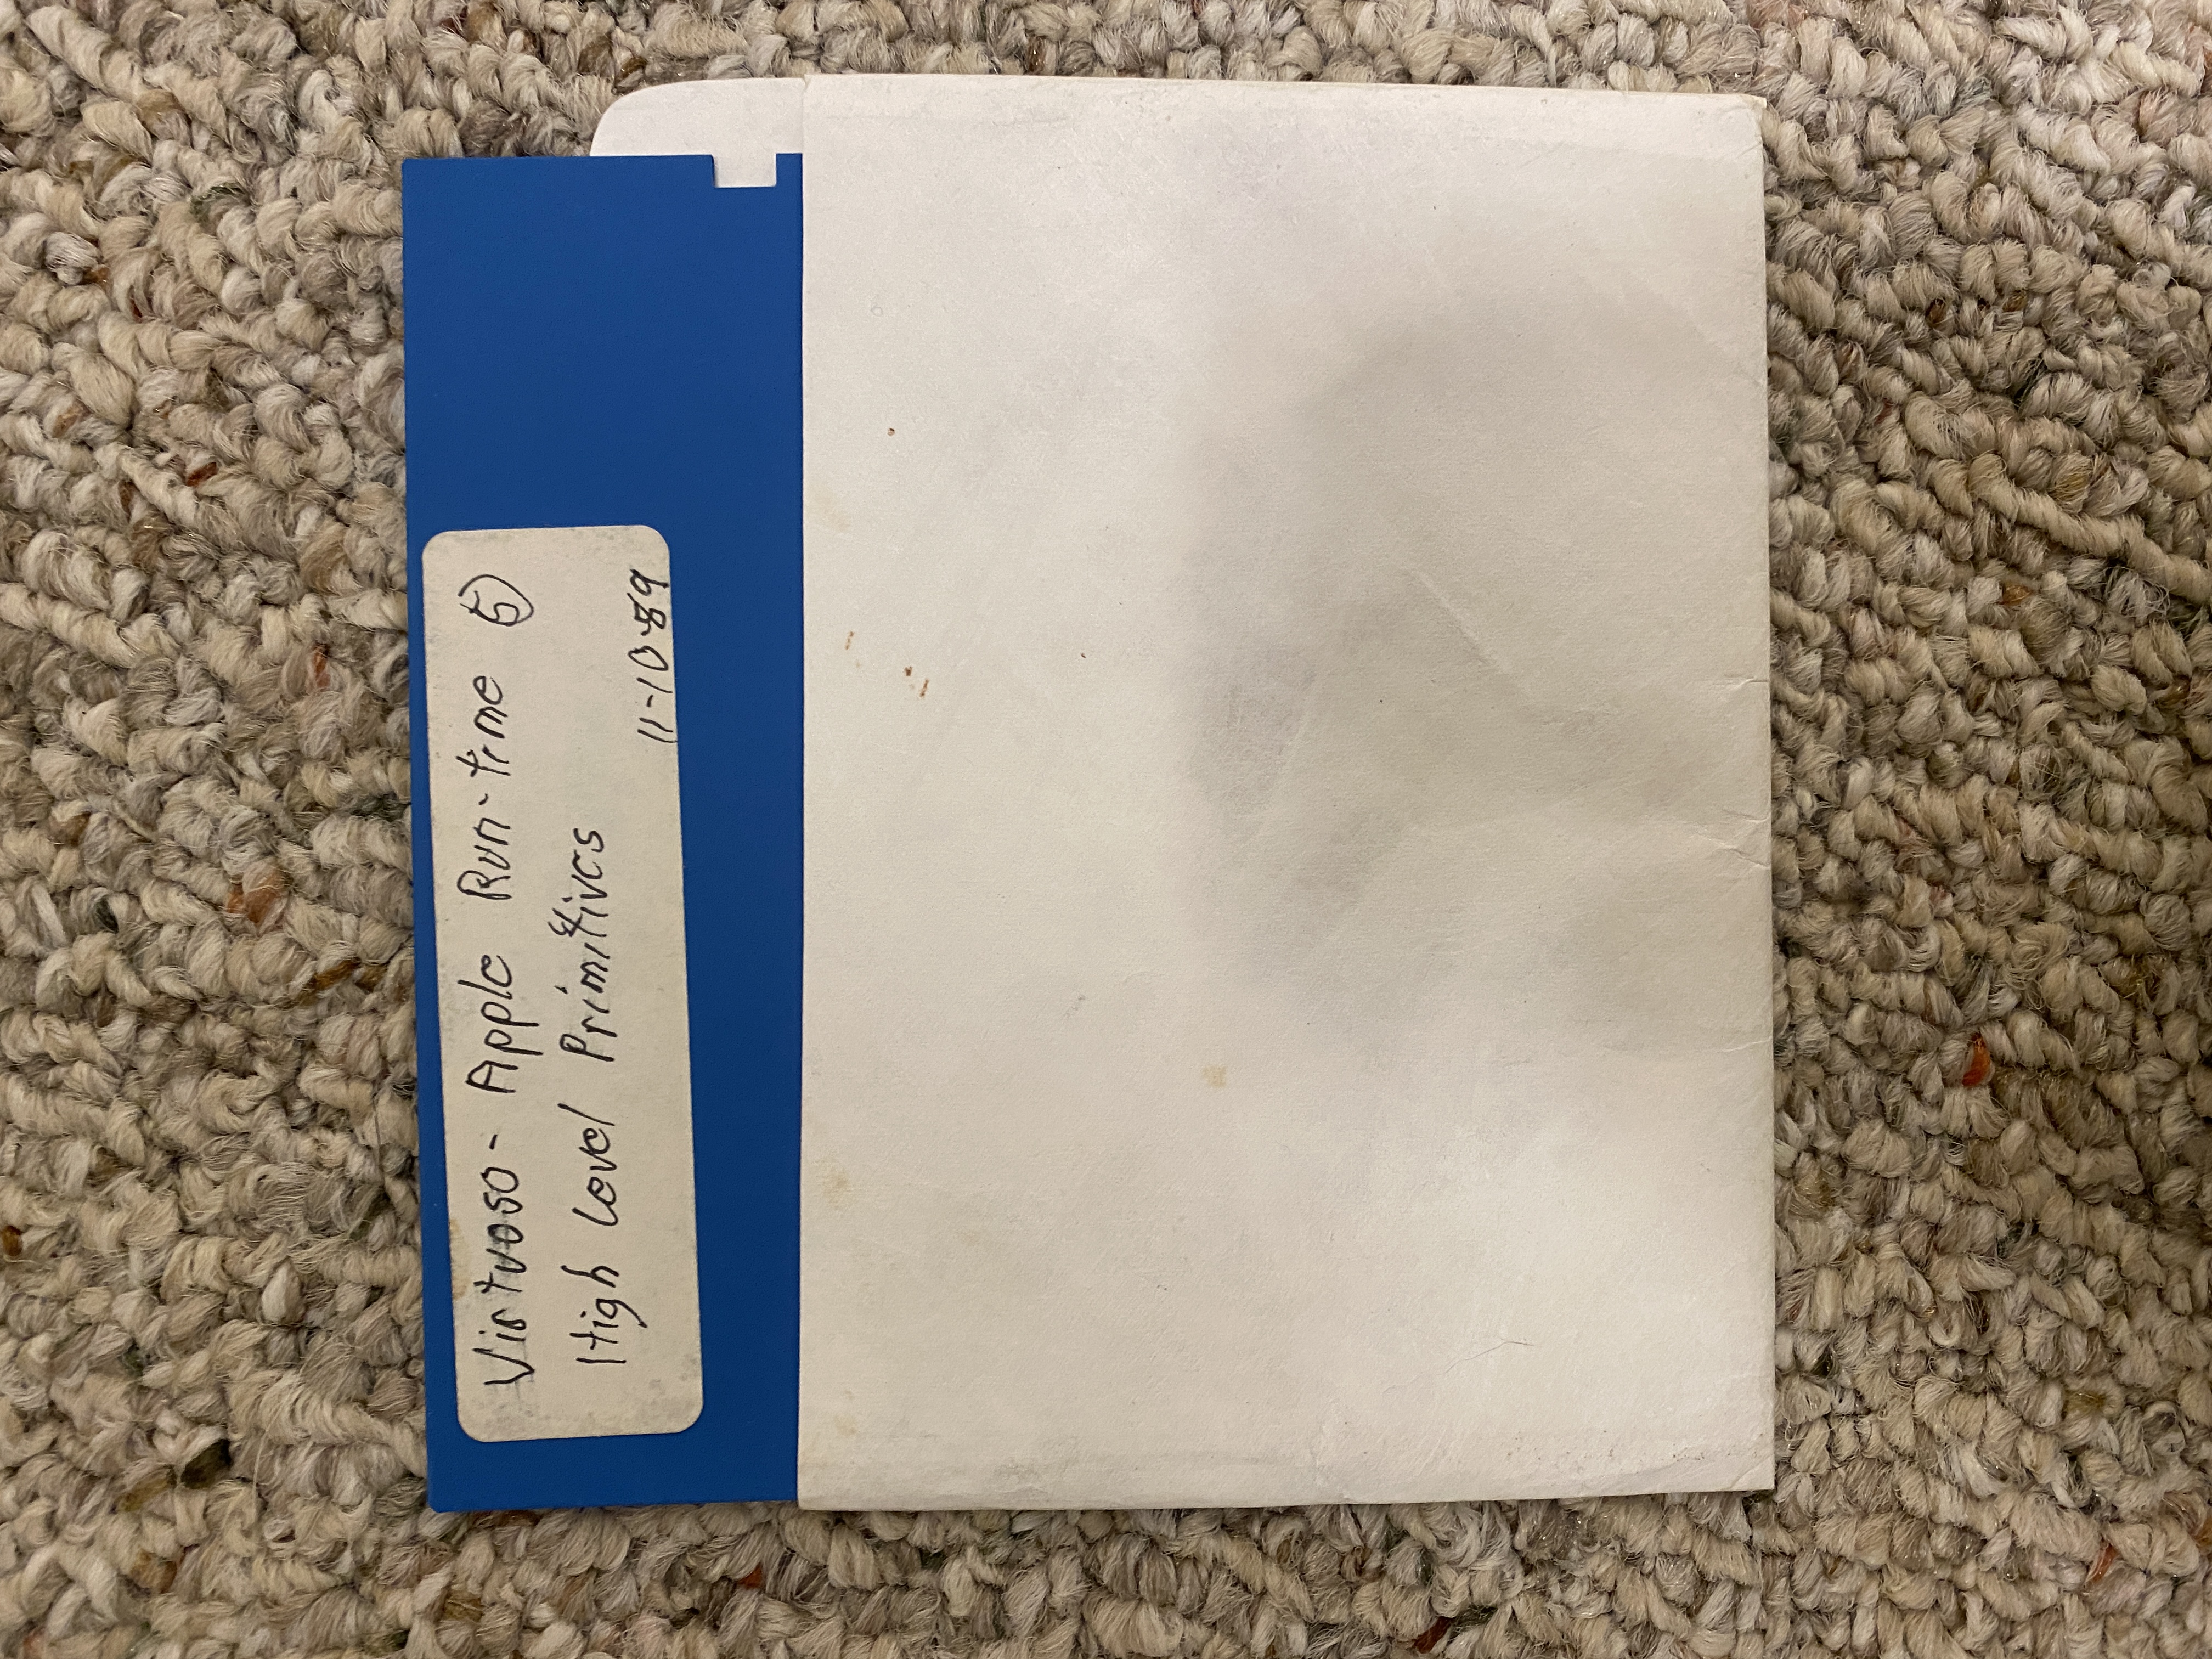 Virtuoso - Apple Run-time ⑤
High Level Primitives
11-10-89